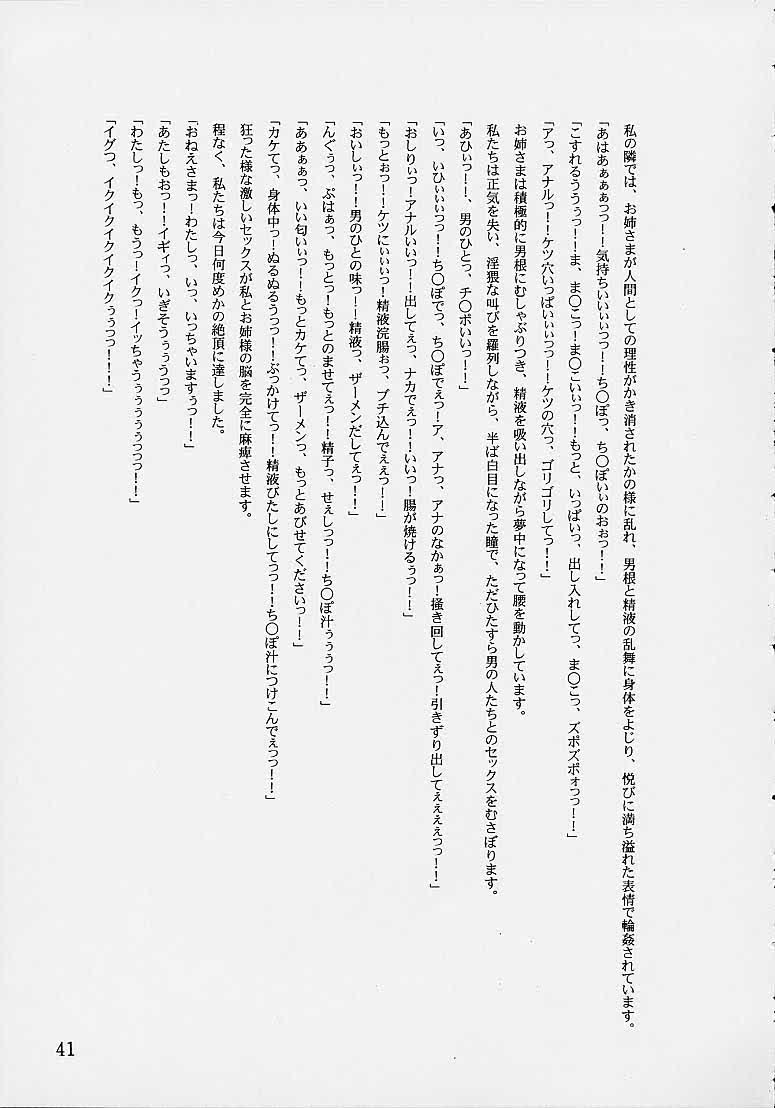 私の隣では、お姉さまが人間としての理性がかき消されたかの様に乱れ、男根と精液の乱舞に身体をよじり、悦びに満ち溢れた表情で輪姦されています。
「あはあぁぁぁっっ！！気持ちいいぃぃっっ！！ち〇ぽっ、ち〇ぽいぃのおぉっ！！」
「こすれるううぅっ！！ま、ま〇こっ！ま〇こいぃっ！！もっと、いっぱいっ、出し入れしてっ、ま〇こっ、ズポズポォっっ！！」
「アっ、アナルっ！！ケツ穴いっぱいぃぃっっ！！ケツの穴っ、ゴリゴリしてっ！！」
お姉さまは積極的に男根にむしゃぶりつき、精液を吸い出しながら夢中になって腰を動かしています。
私たちは正気を失い、淫猥な叫びを羅列しながら、半ば白目になった瞳で、ただひたすら男の人たちとのセックスをむさぼります。
「あひぃっ！！、男のひとっ、チ〇ポいいっ！！」
「いっ、いひぃぃぃっっ！！ち〇ぽでっ、ち〇ぽでぇっ！ア、アナっ、アナのなかぁっ！掻き回してぇっ！引きずり出してえぇぇぇっっ！！」
「おしりぃっ！アナルいいっ！！出してぇっ、ナカでぇっ！！いいっ！腸が焼けるぅっ！！」
「もっとぉっ！！ケツにぃぃぃっ！精液浣腸ぉっ、ブチ込んでぇぇっ！！」
「おいしぃっ！！男のひとの味っ！！精液っ、ザーメンだしてぇっ！！」
「んぐぅっ、ぷはぁっ、もっとっ！もっとのませてえぇっ！！精子っ、せぇしっっ！！ち〇ぽ汁ぅぅぅっ！！」
「ああぁぁっ、いい匂いぃっ！！もっとカケてっ、ザーメンっ、もっとあびせてくださいっ！！」
「カケてっ、身体中っ！ぬるぬるうっっ！！ぶっかけてっ！！精液びたしにしてっっ！！ち〇ぽ汁につけこんでえぇっっ！！」
狂った様な激しいセックスが私とお姉様の脳を完全に麻痺させます。
程なく、私たちは今日何度めかの絶頂に達しました。
「おねえさまっ！わたしっ、いっ、いっちゃいますぅっ！！」
「あたしもおっ！！イギィっ、いぎそうぅぅうっっ」
「わたしっ！もっ、もうっ！イクっ！イッちゃうぅぅぅぅぅっっっ！！」
「イグっ、イクイクイクイクイクぅぅっっ！！！」
41